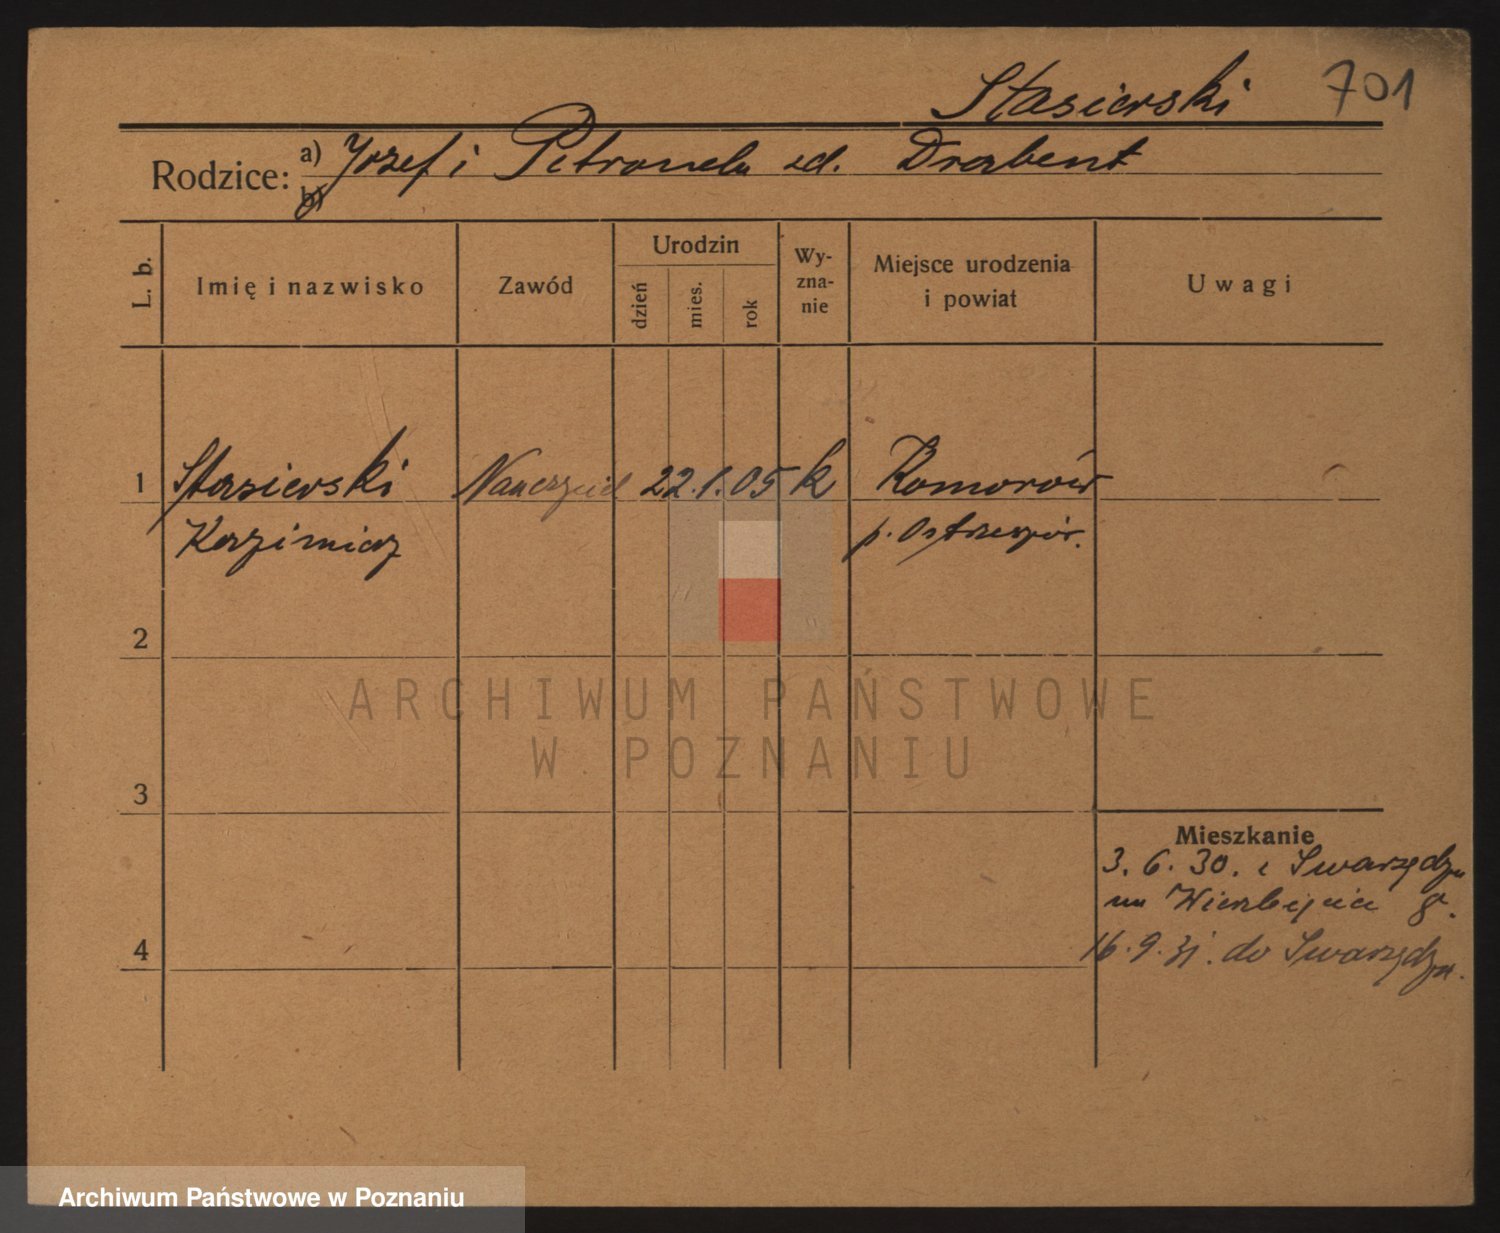 701
Stasierski
Rodzice:
a) Józef i Petronela zd. Drabent
b)
L. b.
Imię i nazwisko
Zawód
Urodzin
dzień
mies.
rok
Wy-
zna-
nie
Miejsce urodzenia
i powiat
Uwagi
1 Stasierski Nauczyciel 22.1.05 k Komorów
Kazimierz p. Ostrzeszów.
2
3
4
Mieszkanie
3. 6. 30. z Swarzędza
na Wierzbięcice 8.
16. 9. 31. do Swarzędza.
ARCHIWUM PAŃSTWOWE
W POZNANIU
Archiwum Państwowe w Poznaniu